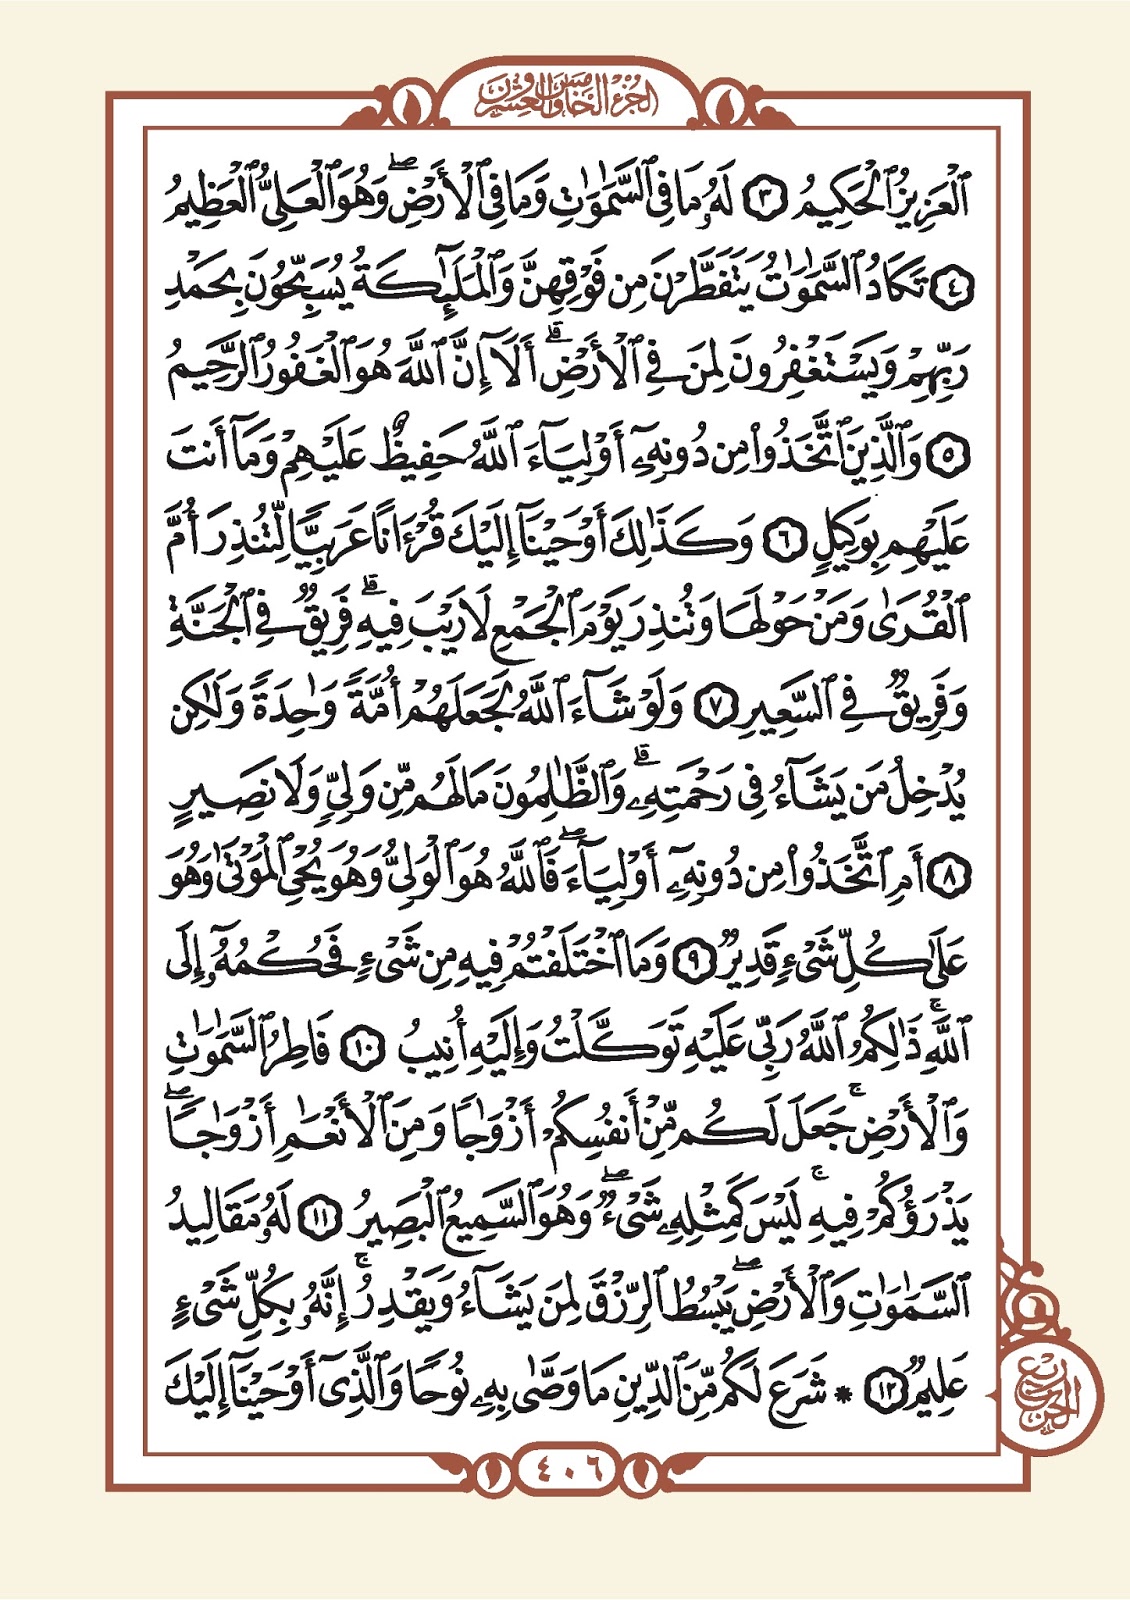 الجزء الخامس والعشرون
ٱلْعَزِيزُ ٱلْحَكِيمُ ۝٣ لَهُۥ مَا فِى ٱلسَّمَٰوَٰتِ وَمَا فِى ٱلْأَرْضِۖ وَهُوَ ٱلْعَلِىُّ ٱلْعَظِيمُ
۝٤ تَكَادُ ٱلسَّمَٰوَٰتُ يَتَفَطَّرْنَ مِن فَوْقِهِنَّ وَٱلْمَلَٰٓئِكَةُ يُسَبِّحُونَ بِحَمْدِ
رَبِّهِمْ وَيَسْتَغْفِرُونَ لِمَن فِى ٱلْأَرْضِۗ أَلَآ إِنَّ ٱللَّهَ هُوَ ٱلْغَفُورُ ٱلرَّحِيمُ
۝٥ وَٱلَّذِينَ ٱتَّخَذُوا۟ مِن دُونِهِۦٓ أَوْلِيَآءَ ٱللَّهُ حَفِيظٌ عَلَيْهِمْ وَمَآ أَنتَ
عَلَيْهِم بِوَكِيلٍ ۝٦ وَكَذَٰلِكَ أَوْحَيْنَآ إِلَيْكَ قُرْءَانًا عَرَبِيًّا لِّتُنذِرَ أُمَّ
ٱلْقُرَىٰ وَمَنْ حَوْلَهَا وَتُنذِرَ يَوْمَ ٱلْجَمْعِ لَا رَيْبَ فِيهِۗ فَرِيقٌ فِى ٱلْجَنَّةِ
وَفَرِيقٌ فِى ٱلسَّعِيرِ ۝٧ وَلَوْ شَآءَ ٱللَّهُ لَجَعَلَهُمْ أُمَّةً وَٰحِدَةً وَلَٰكِن
يُدْخِلُ مَن يَشَآءُ فِى رَحْمَتِهِۦۗ وَٱلظَّٰلِمُونَ مَا لَهُم مِّن وَلِىٍّ وَلَا نَصِيرٍ
۝٨ أَمِ ٱتَّخَذُوا۟ مِن دُونِهِۦٓ أَوْلِيَآءَۖ فَٱللَّهُ هُوَ ٱلْوَلِىُّ وَهُوَ يُحْىِ ٱلْمَوْتَىٰ وَهُوَ
عَلَىٰ كُلِّ شَىْءٍ قَدِيرٌ ۝٩ وَمَا ٱخْتَلَفْتُمْ فِيهِ مِن شَىْءٍ فَحُكْمُهُۥٓ إِلَى
ٱللَّهِۚ ذَٰلِكُمُ ٱللَّهُ رَبِّى عَلَيْهِ تَوَكَّلْتُ وَإِلَيْهِ أُنِيبُ ۝١٠ فَاطِرُ ٱلسَّمَٰوَٰتِ
وَٱلْأَرْضِۚ جَعَلَ لَكُم مِّنْ أَنفُسِكُمْ أَزْوَٰجًا وَمِنَ ٱلْأَنْعَٰمِ أَزْوَٰجًاۖ
يَذْرَؤُكُمْ فِيهِۚ لَيْسَ كَمِثْلِهِۦ شَىْءٌۖ وَهُوَ ٱلسَّمِيعُ ٱلْبَصِيرُ ۝١١ لَهُۥ مَقَالِيدُ
ٱلسَّمَٰوَٰتِ وَٱلْأَرْضِۖ يَبْسُطُ ٱلرِّزْقَ لِمَن يَشَآءُ وَيَقْدِرُۚ إِنَّهُۥ بِكُلِّ شَىْءٍ
عَلِيمٌ ۝١٢ * شَرَعَ لَكُم مِّنَ ٱلدِّينِ مَا وَصَّىٰ بِهِۦ نُوحًا وَٱلَّذِىٓ أَوْحَيْنَآ إِلَيْكَ
ربع الحزب
٤٠٦